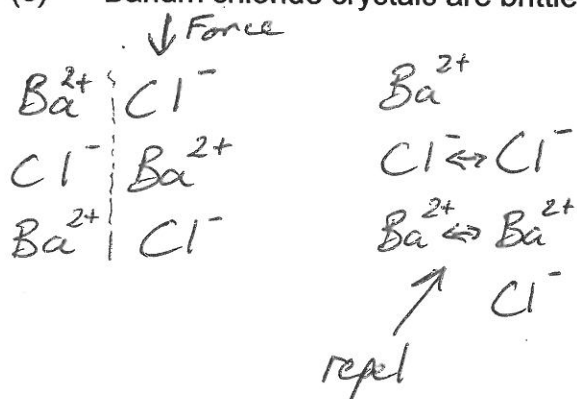 Barium chloride crystals are brittle
↓ Force
Ba²⁺ Cl⁻
Cl⁻ Ba²⁺
Ba²⁺ Cl⁻
Ba²⁺
Cl⁻ ↔ Cl⁻
Ba²⁺ ↔ Ba²⁺
Cl⁻
repel